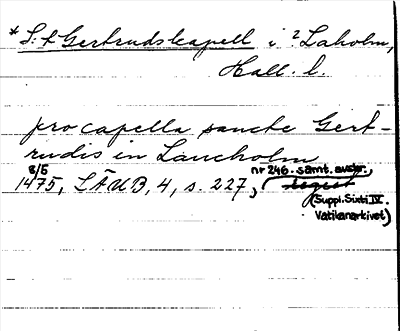 *S:t Gertrudskapell i ²Laholm,
Hall. l.
pro capella sancte Gert-
rudis in Laucholm
8/5 nr 246. samt. avskr.,
1475, LÄUB, 4, s. 227, regest
(Suppl. Sixti IV.
Vatikanarkivet)